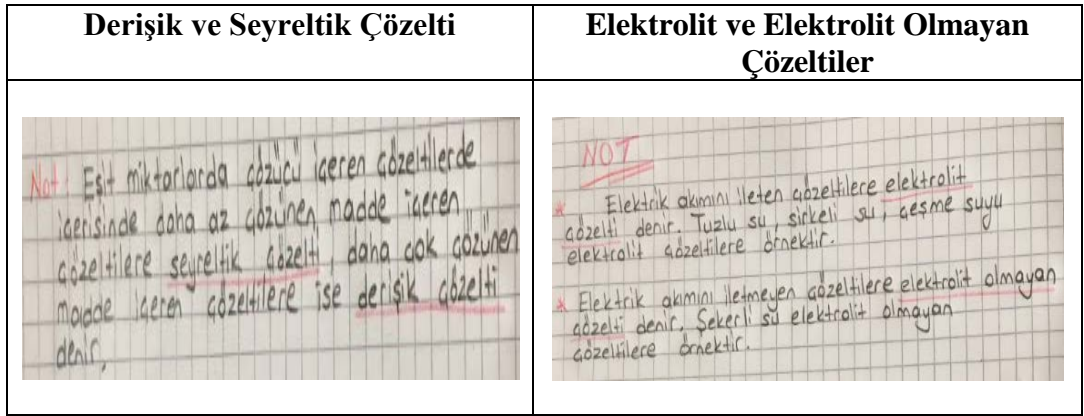 Derişik ve Seyreltik Çözelti
Elektrolit ve Elektrolit Olmayan
Çözeltiler
Not: Eşit miktarlarda çözücü içeren çözeltilerde
içerisinde daha az çözünen madde içeren
çözeltilere seyreltik çözelti, daha çok çözünen
madde içeren çözeltilere ise derişik çözelti
denir.
NOT
* Elektrik akımını ileten çözeltilere elektrolit
çözelti denir. Tuzlu su, sirkeli su, çeşme suyu
elektrolit çözeltilere örnektir.
* Elektrik akımını iletmeyen çözeltilere elektrolit olmayan
çözelti denir. Şekerli su elektrolit olmayan
çözeltilere örnektir.